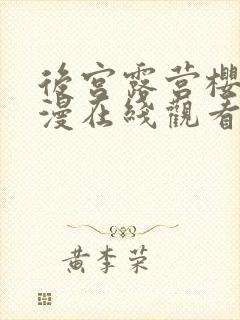 後宮露营櫻
漫在线觀看
黄李荣